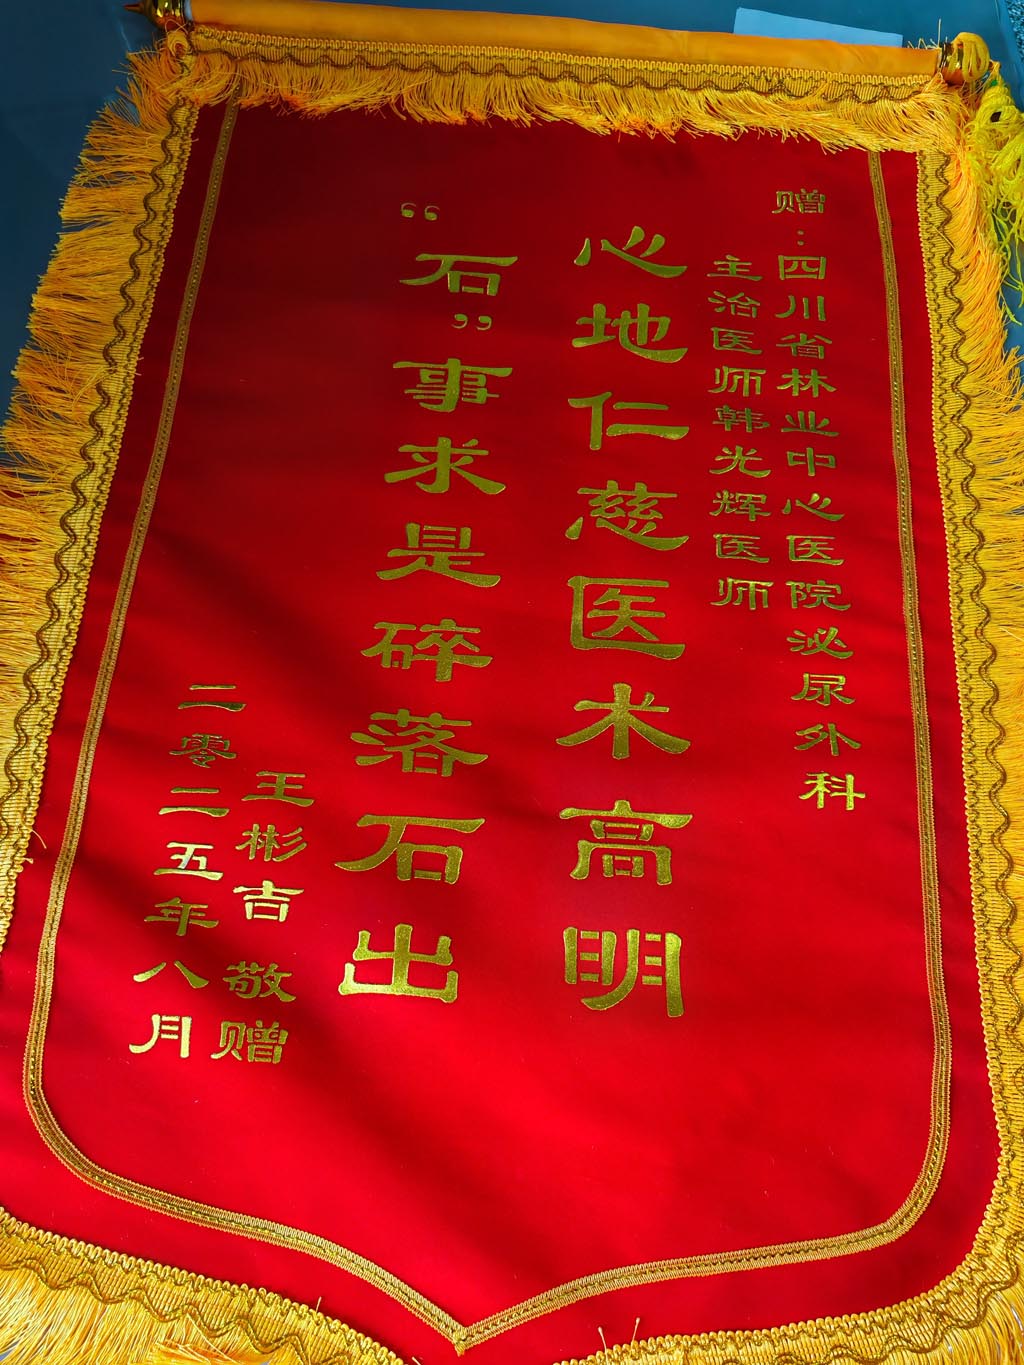 赠：四川省林业中心医院泌尿外科
主治医师韩光辉医师
心地仁慈医术高明
“石”事求是碎落石出
王彬吉 敬赠
二零二五年八月